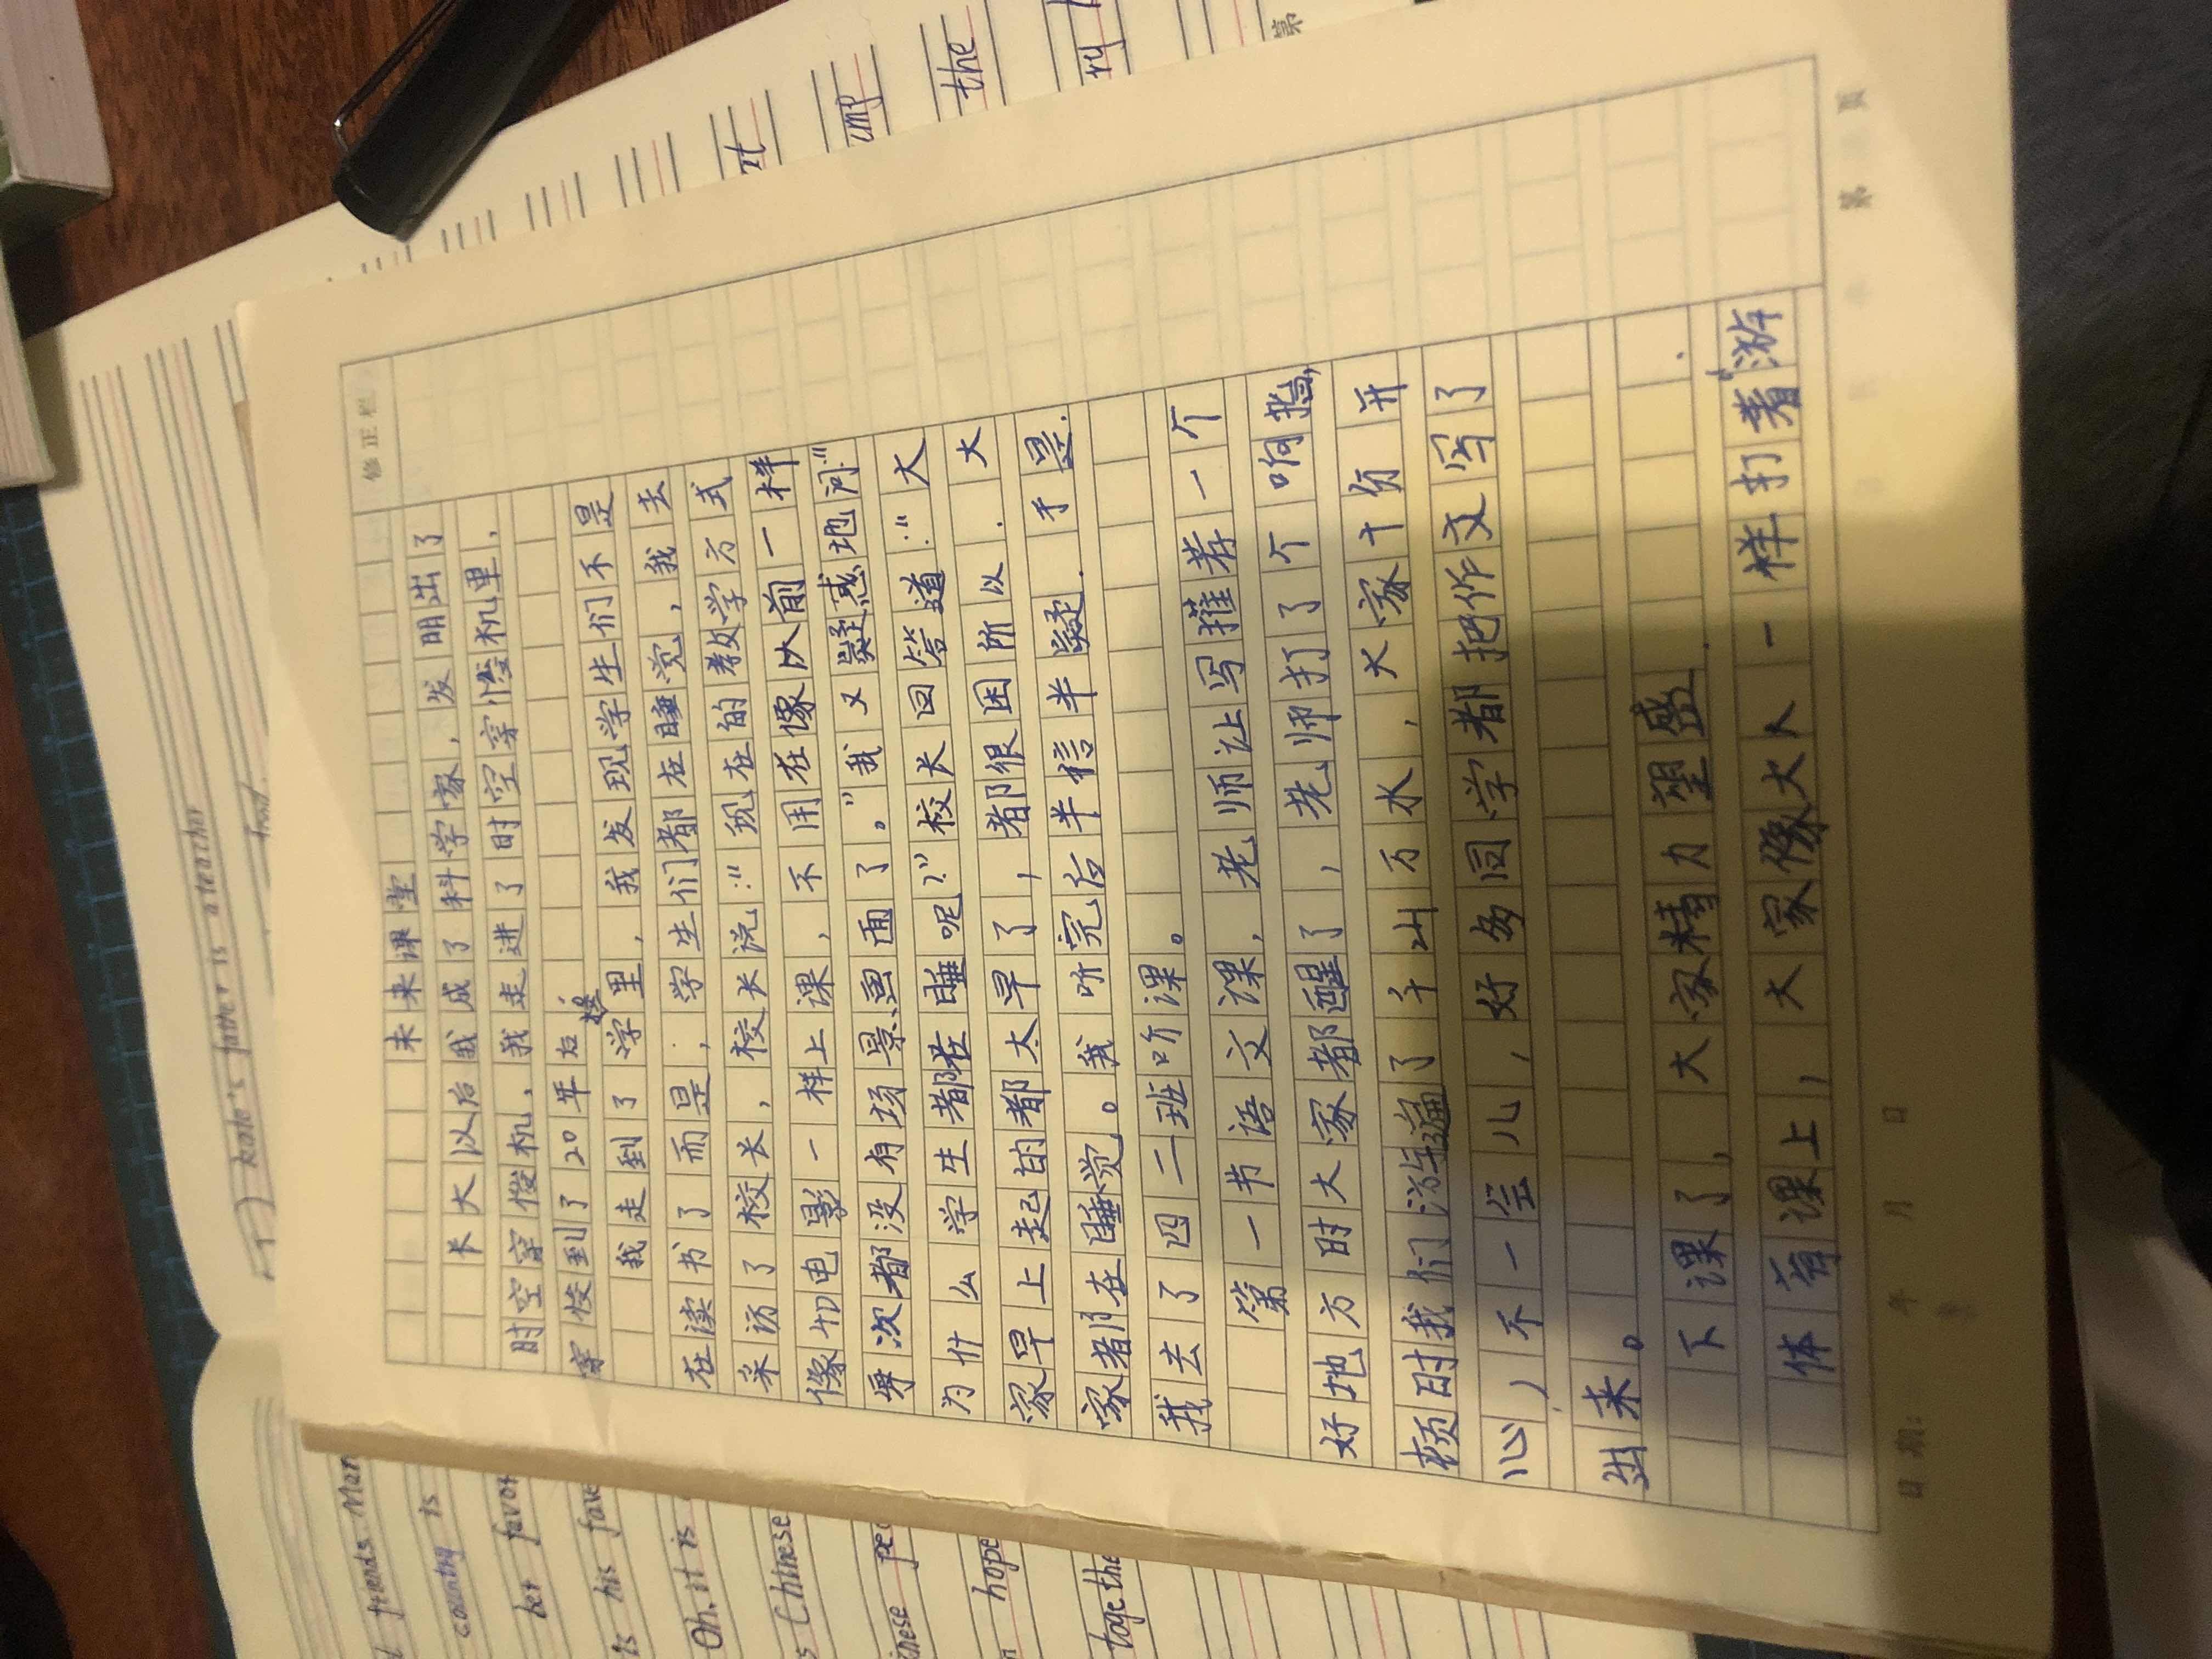 修正栏
未来课堂
长大以后我成了科学家，发明出了
时空穿梭机，我走进了时空穿梭机里，
穿梭到了20年后。
我走到了学校里，我发现学生们不是
在读书了而是，学生们都在睡觉，我去
采访了校长，校长说：“现在的教学方式
像切电影一样上课，不用在像以前一样
每次都没有场景画面了。”我又疑惑地问：“
为什么学生都在睡呢？”校长回答道：“大
家早上起的都太早了，都很困所以，大
家都在睡觉。我听完后半信半疑．于是．
我去了四二班听课。
第一节语文课，老师让写推荐一个
好地方时大家都醒了，老师打了个响指，
顿时我们游遍了千山万水，大家十分开
心，不一会儿，好多同学都把作文写了
出来。
下课了，大家精力望盛．
体育课上，大家像大人一样打着“游
日期： 年 月 日
第 页
kate's father is a teacher
friends
country is
her favor
is his fav
Oh, it is
s Chinese
hope
toge the
the